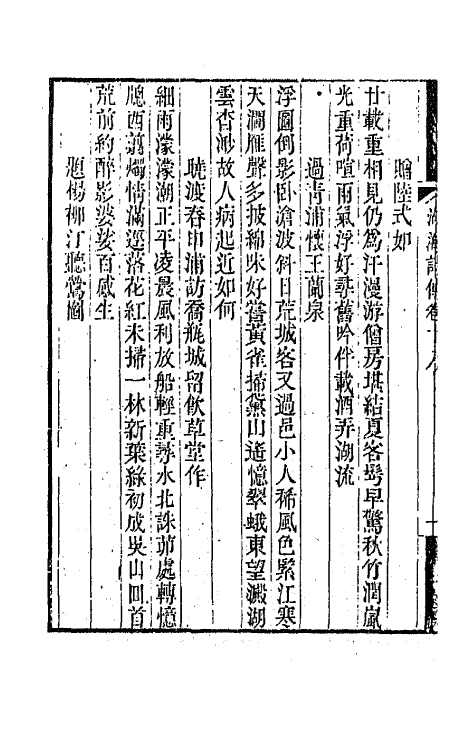 湖海詩傳卷十八
贈陸式如
廿載重相見仍為汗漫游僧房堪結夏客髩早驚秋竹潤嵐
光重荷喧雨氣浮好尋舊吟伴載酒弄湖流
過青浦懷王蘭泉
浮圖倒影臥滄波斜日荒城客又過邑小人稀風色緊江寒
天濶雁聲多披綿味好嘗黃雀掃黛山遙憶翠蛾東望澱湖
雲杳渺故人病起近如何
曉渡春申浦訪喬瓶城留飲草堂作
細雨濛濛潮正平凌晨風利放船輕重尋水北誅茆處轉憶
牕西翦燭情滿逕落花紅未掃一林新葉綠初成吳山回首
荒前約醉影婆娑百感生
題楊柳汀聽鶯圖